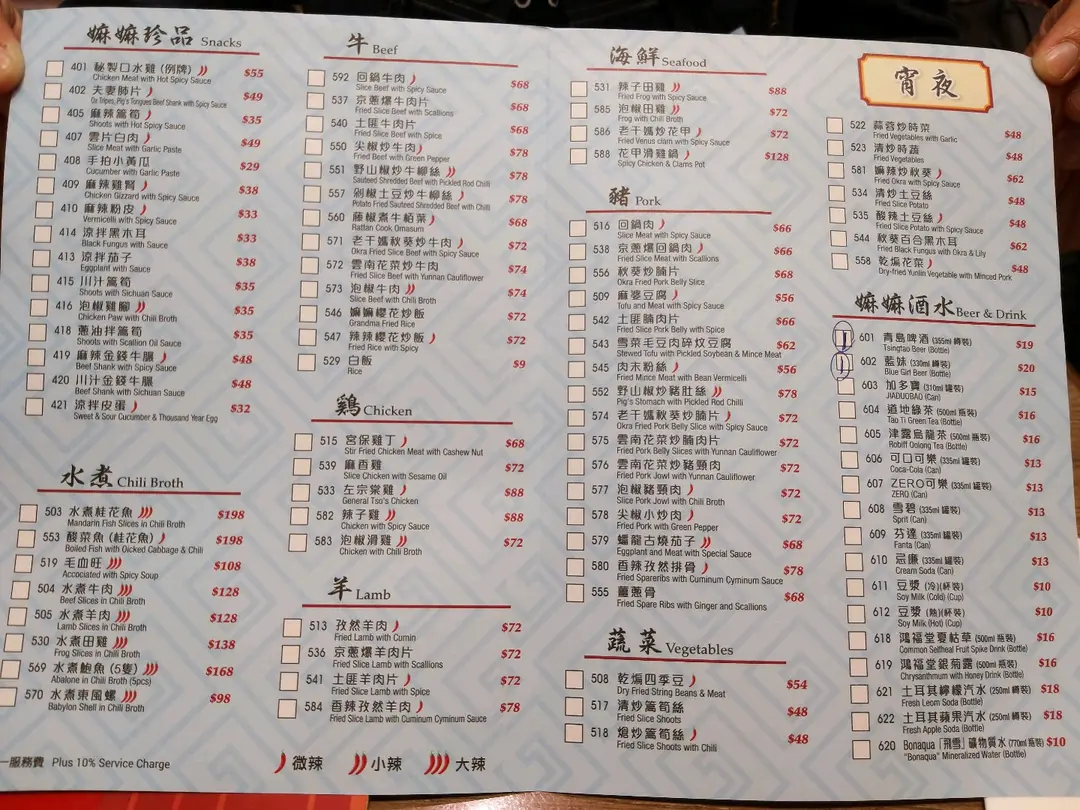 嫲嫲珍品 Snacks
401 秘製口水雞 (例牌) $55
Chicken Meat with Hot Spicy Sauce
402 夫妻肺片 $49
Ox Tripes, Pig's Tongues Beef Shank with Spicy Sauce
405 麻辣篙筍 $35
Shoots with Hot Spicy Sauce
407 雲片白肉 $49
Slice Meat with Garlic Paste
408 手拍小黃瓜 $29
Cucumber with Garlic Paste
409 麻辣雞腎 $38
Chicken Gizzard with Spicy Sauce
410 麻辣粉皮 $33
Vermicelli with Spicy Sauce
414 涼拌黑木耳 $33
Black Fungus with Sauce
413 涼拌茄子 $38
Eggplant with Sauce
415 川汁篙筍 $35
Shoots with Sichuan Sauce
416 泡椒雞腳 $35
Chicken Paw with Chili Broth
418 蔥油拌篙筍 $35
Shoots with Scallion Oil Sauce
419 麻辣金錢牛𦟌 $48
Beef Shank with Spicy Sauce
420 川汁金錢牛𦟌 $48
Beef Shank with Sichuan Sauce
421 涼拌皮蛋 $32
Sweet & Sour Cucumber & Thousand Year Egg
水煮 Chili Broth
503 水煮桂花魚 $198
Mandarin Fish Slices in Chili Broth
553 酸菜魚 (桂花魚) $198
Boiled Fish with Oicked Cabbage & Chili
519 毛血旺 $108
Accociated with Spicy Soup
504 水煮牛肉 $128
Beef Slices in Chili Broth
505 水煮羊肉 $128
Lamb Slices in Chili Broth
530 水煮田雞 $138
Frog Slices in Chili Broth
569 水煮鮑魚 (5隻) $168
Abalone in Chili Broth (5pcs)
570 水煮東風螺 $98
Babylon Shell in Chili Broth
一服務費 Plus 10% Service Charge
牛 Beef
592 回鍋牛肉 $68
Slice Beef with Spicy Sauce
537 京蔥爆牛肉片 $68
Fried Slice Beef with Scallions
540 土匪牛肉片 $68
Fried Slice Beef with Spice
550 尖椒炒牛肉 $78
Fried Beef with Green Pepper
551 野山椒炒牛柳絲 $78
Sauteed Shredded Beef with Pickled Rod Chilli
557 剁椒土豆炒牛柳絲 $78
Potato Fried Sauteed Shredded Beef with Chilli
560 藤椒煮牛栢葉 $68
Rattan Cook Omasum
571 老干媽秋葵炒牛肉 $72
Okra Fried Slice Beef with Spicy Sauce
572 雲南花菜炒牛肉 $74
Fried Slice Beef with Yunnan Cauliflower
573 泡椒牛肉 $74
Slice Beef with Chili Broth
546 嫲嫲櫻花炒飯 $72
Grandma Fried Rice
547 辣辣櫻花炒飯 $72
Fried Rice with Spicy
529 白飯 $9
Rice
鷄 Chicken
515 宮保雞丁 $68
Stir Fried Chicken Meat with Cashew Nut
539 麻香雞 $72
Slice Chicken with Sesame Oil
533 左宗棠雞 $88
General Tso's Chicken
582 辣子雞 $88
Chicken with Spicy Sauce
583 泡椒滑雞 $72
Chicken with Chili Broth
羊 Lamb
513 孜然羊肉 $72
Fried Lamb with Cumin
536 京蔥爆羊肉片 $72
Fried Slice Lamb with Scallions
541 土匪羊肉片 $72
Fried Slice Lamb with Spice
584 香辣孜然羊肉 $78
Fried Slice Lamb with Cuminum Cyminum Sauce
微辣 小辣 大辣
海鮮 Seafood
531 辣子田雞 $88
Fried Frog with Spicy Sauce
585 泡椒田雞 $72
Frog with Chili Broth
586 老干媽炒花甲 $72
Fried Venus clam with Spicy Sauce
588 花甲滑雞鍋 $128
Spicy Chicken & Clams Pot
豬 Pork
516 回鍋肉 $66
Slice Meat with Spicy Sauce
538 京蔥爆回鍋肉 $66
Fried Slice Meat with Scallions
556 秋葵炒腩片 $68
Okra Fried Pork Belly Slice
509 麻婆豆腐 $56
Tofu and Meat with Spicy Sauce
542 土匪腩肉片 $66
Fried Slice Pork Belly with Spice
543 雪菜毛豆肉碎炆豆腐 $62
Stewed Tofu with Pickled Soybean & Mince Meat
545 肉末粉絲 $56
Fried Mince Meat with Bean Vermicelli
552 野山椒炒豬肚絲 $78
Pig's Stomach with Pickled Rod Chilli
574 老干媽秋葵炒腩片 $72
Okra Fried Pork Belly Slice with Spicy Sauce
575 雲南花菜炒腩肉片 $72
Fried Pork Belly Slices with Yunnan Cauliflower
576 雲南花菜炒豬頸肉 $72
Fried Pork Jowl with Yunnan Cauliflower
577 泡椒豬頸肉 $72
Slice Pork Jowl with Chili Broth
578 尖椒小炒肉 $72
Fried Pork with Green Pepper
579 蟠龍古燒茄子 $68
Eggplant and Meat with Special Sauce
580 香辣孜然排骨 $78
Fried Spareribs with Cuminum Cyminum Sauce
555 薑蔥骨 $68
Fried Spare Ribs with Ginger and Scallions
蔬菜 Vegetables
508 乾煸四季豆 $54
Dry Fried String Beans & Meat
517 清炒篙筍絲 $48
Fried Slice Shoots
518 熗炒篙筍絲 $48
Fried Slice Shoots with Chili
宵夜
522 蒜蓉炒時菜 $48
Fried Vegstables with Garlic
523 清炒時蔬 $48
Fried Vegetables
581 嫲辣炒秋葵 $62
Fried Okra with Spicy Sauce
534 清炒土豆絲 $48
Fried Slice Potato
535 酸辣土豆絲 $48
Fried Slice Potato with Spicy Sauce
544 秋葵百合黑木耳 $62
Fried Black Fungus with Okra & Lily
558 乾煸花菜 $48
Dry-fried Yunlin Vegetable with Minced Pork
嫲嫲酒水 Beer & Drink
601 青島啤酒 (355ml 罇裝) $19
Tsingtao Beer (Bottle)
602 藍妹 (330ml 罇裝) $20
Blue Girl Beer (Bottle)
603 加多寶 (310ml 罐裝) $15
JIADUOBAO (Can)
604 道地綠茶 (500ml 瓶裝) $16
Tao Ti Green Tea (Bottle)
605 津露烏龍茶 (500ml 瓶裝) $16
Robiff Oolong Tea (Bottle)
606 可口可樂 (335ml 罐裝) $13
Coca-Cola (Can)
607 ZERO可樂 (335ml 罐裝) $13
ZERO (Can)
608 雪碧 (335ml 罐裝) $13
Sprit (Can)
609 芬達 (335ml 罐裝) $13
Fanta (Can)
610 忌廉 (335ml 罐裝) $13
Cream Soda (Can)
611 豆漿 (冷)(杯裝) $10
Soy Milk (Cold) (Cup)
612 豆漿 (熱)(杯裝) $10
Soy Milk (Hot) (Cup)
618 鴻福堂夏枯草 (500ml 瓶裝) $16
Common Selfheal Fruit Spike Drink (Bottle)
619 鴻福堂銀菊露 (500ml 瓶裝) $16
Chrysanthmum with Honey Drink (Bottle)
621 土耳其檸檬汽水 (250ml 罇裝) $18
Fresh Leom Soda (Bottle)
622 土耳其蘋果汽水 (250ml 罇裝) $18
Fresh Apple Soda (Bottle)
620 Bonaqua「飛雪」礦物質水 (770ml 瓶裝) $10
"Bonaqua" Mineralized Water (Bottle)